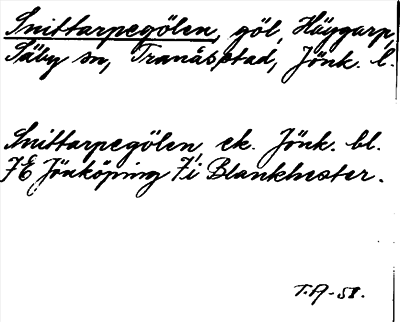 Snittarpegölen, göl, Häggarp,
Säby sn, Tranås stad, Jönk. l.
Snittarpegölen, ek. Jönk. bl.
7E Jönköping 7i Blankhester.
T.A-58.